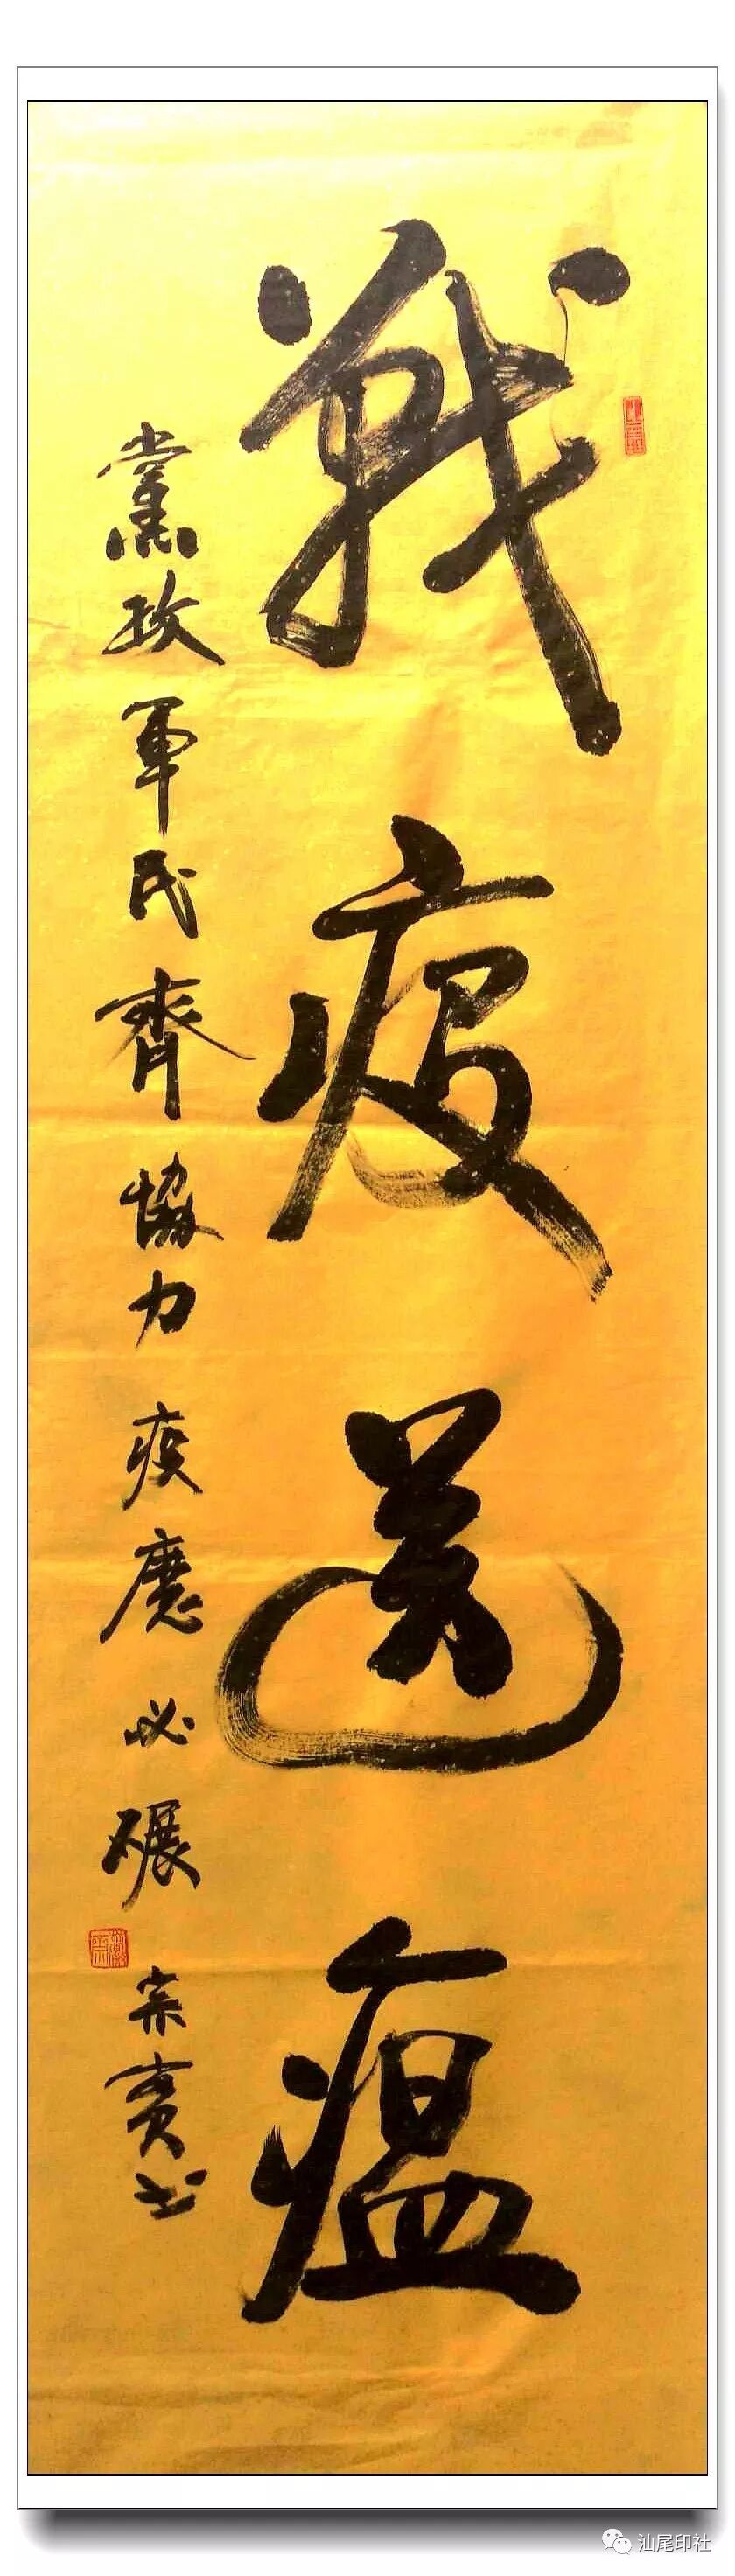 戰疫送瘟
黨政軍民齊協力 疫魔必碾 宗賁书
汕尾印社